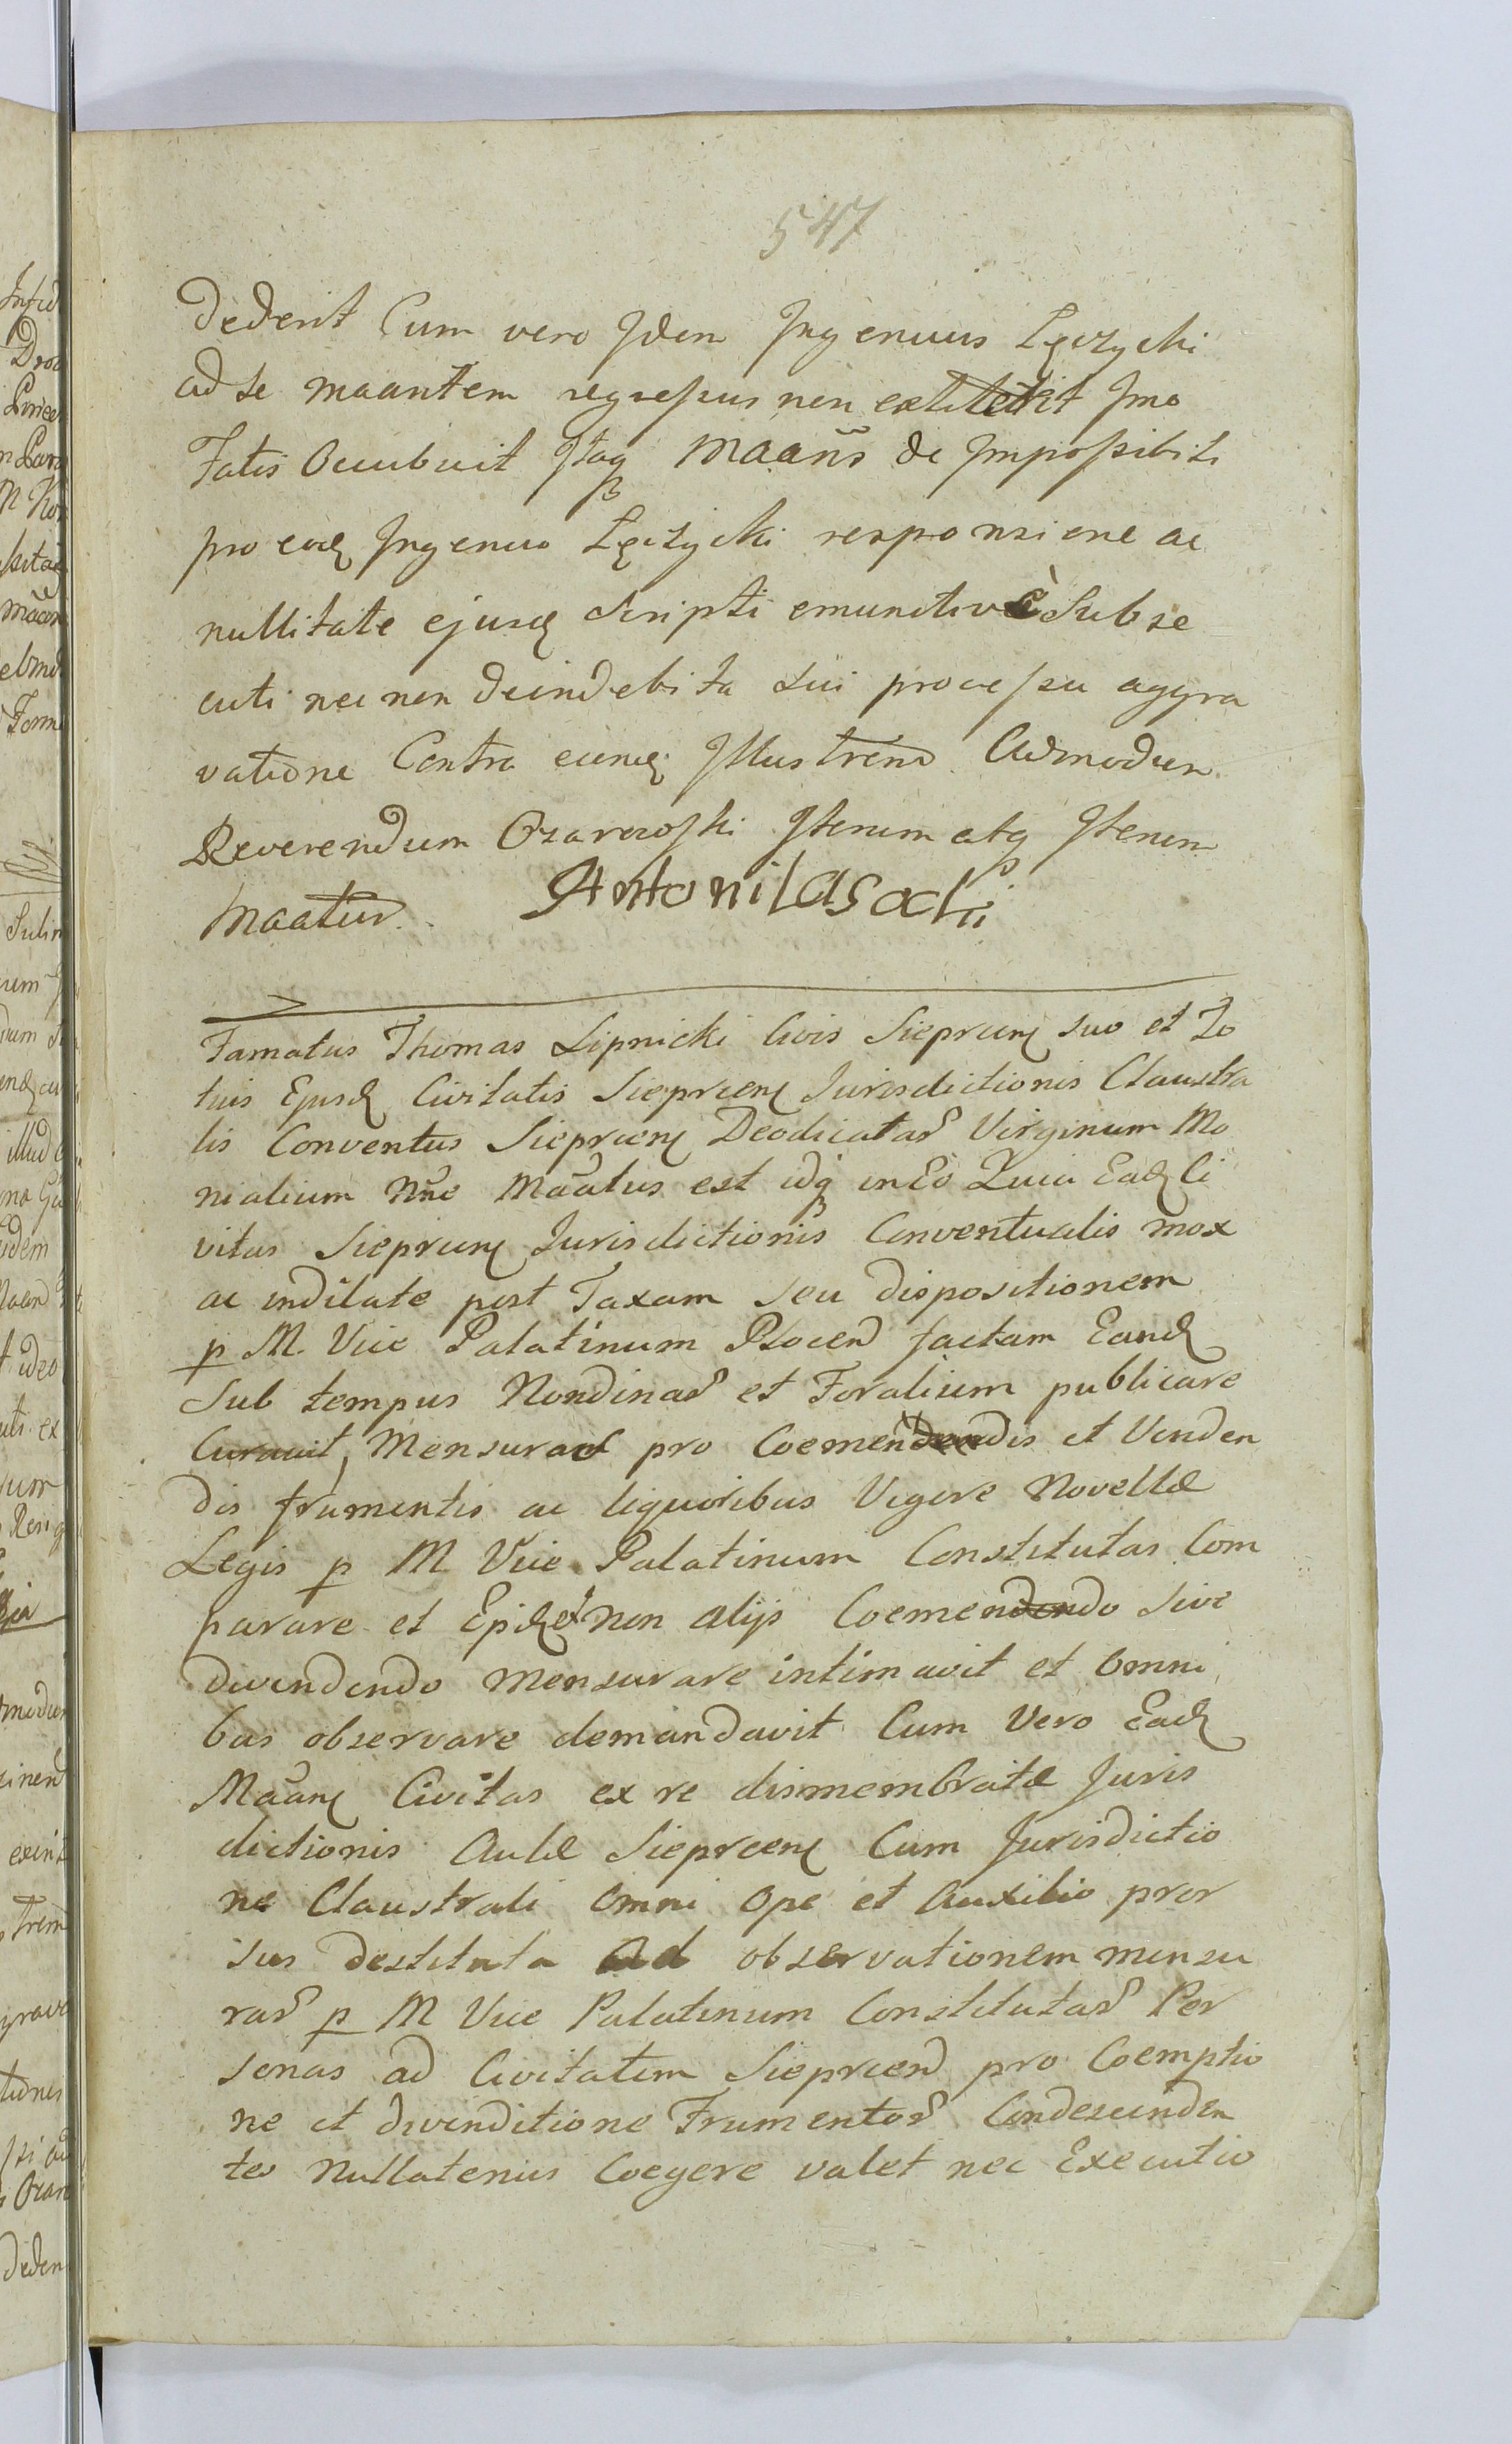 547
dederit Cum vero Idem Ingenuus Łęczycki
ad se maantem regressus non extitetrit Imo
Fatis Ocubuit Itaq Maans de Impossibili
pro eodȩ Ingenuo Łęczycki responsione ac
nullitate ejusd Scripti emunitivè Subse
cuti nec non de indebita sui processu aggra
vatione Contra eund Illustrem Admodum
Reverendum Ozarowski Iterum atq Iterum
Maatur. Antoni Lasocki
Famatus Thomas Lipnicki Civis Sieprcen suo et To
tius Ejusd Civitatis Sieprcen Jurisdictionis Claustra
lis Conventus Sieprcen Deodicatar Virginum Mo
nialium Nne Maatus est idq in Eo Quia Ead Ci
vitas Sieprcen Jurisdictionis Conventualis mox
ac indilate post Taxam seu dispositionem
p M. Vice Palatinum Plocen factam Eand
Sub tempus Nondinar et Foralium publicare
Curavit, Mensurad pro Coemendendis et Venden
dis frumentis ac liquoribus Vigore Novellæ
Legis p M Vice Palatinum Constitutas Com
parare et non alijs Coemendendo sive
divendendo Mensurare intimavit et Omni
bus observare demandavit Cum Vero Ead
Maan Civitas ex re dismembratæ Juris
dictionis Aulæ Sieprcen Cum Jurisdictio
ne Claustrali Omni Ope et Auxilio pror
sus destituta Ad observationem mensu
rar p M Vice Palatinum Constitutar Per
sonas ad Civitatem Sieprcen pro Coemptio
ne et divenditione Frumentor Condescenden
tes Nullatenus Coegere valet nec Executio